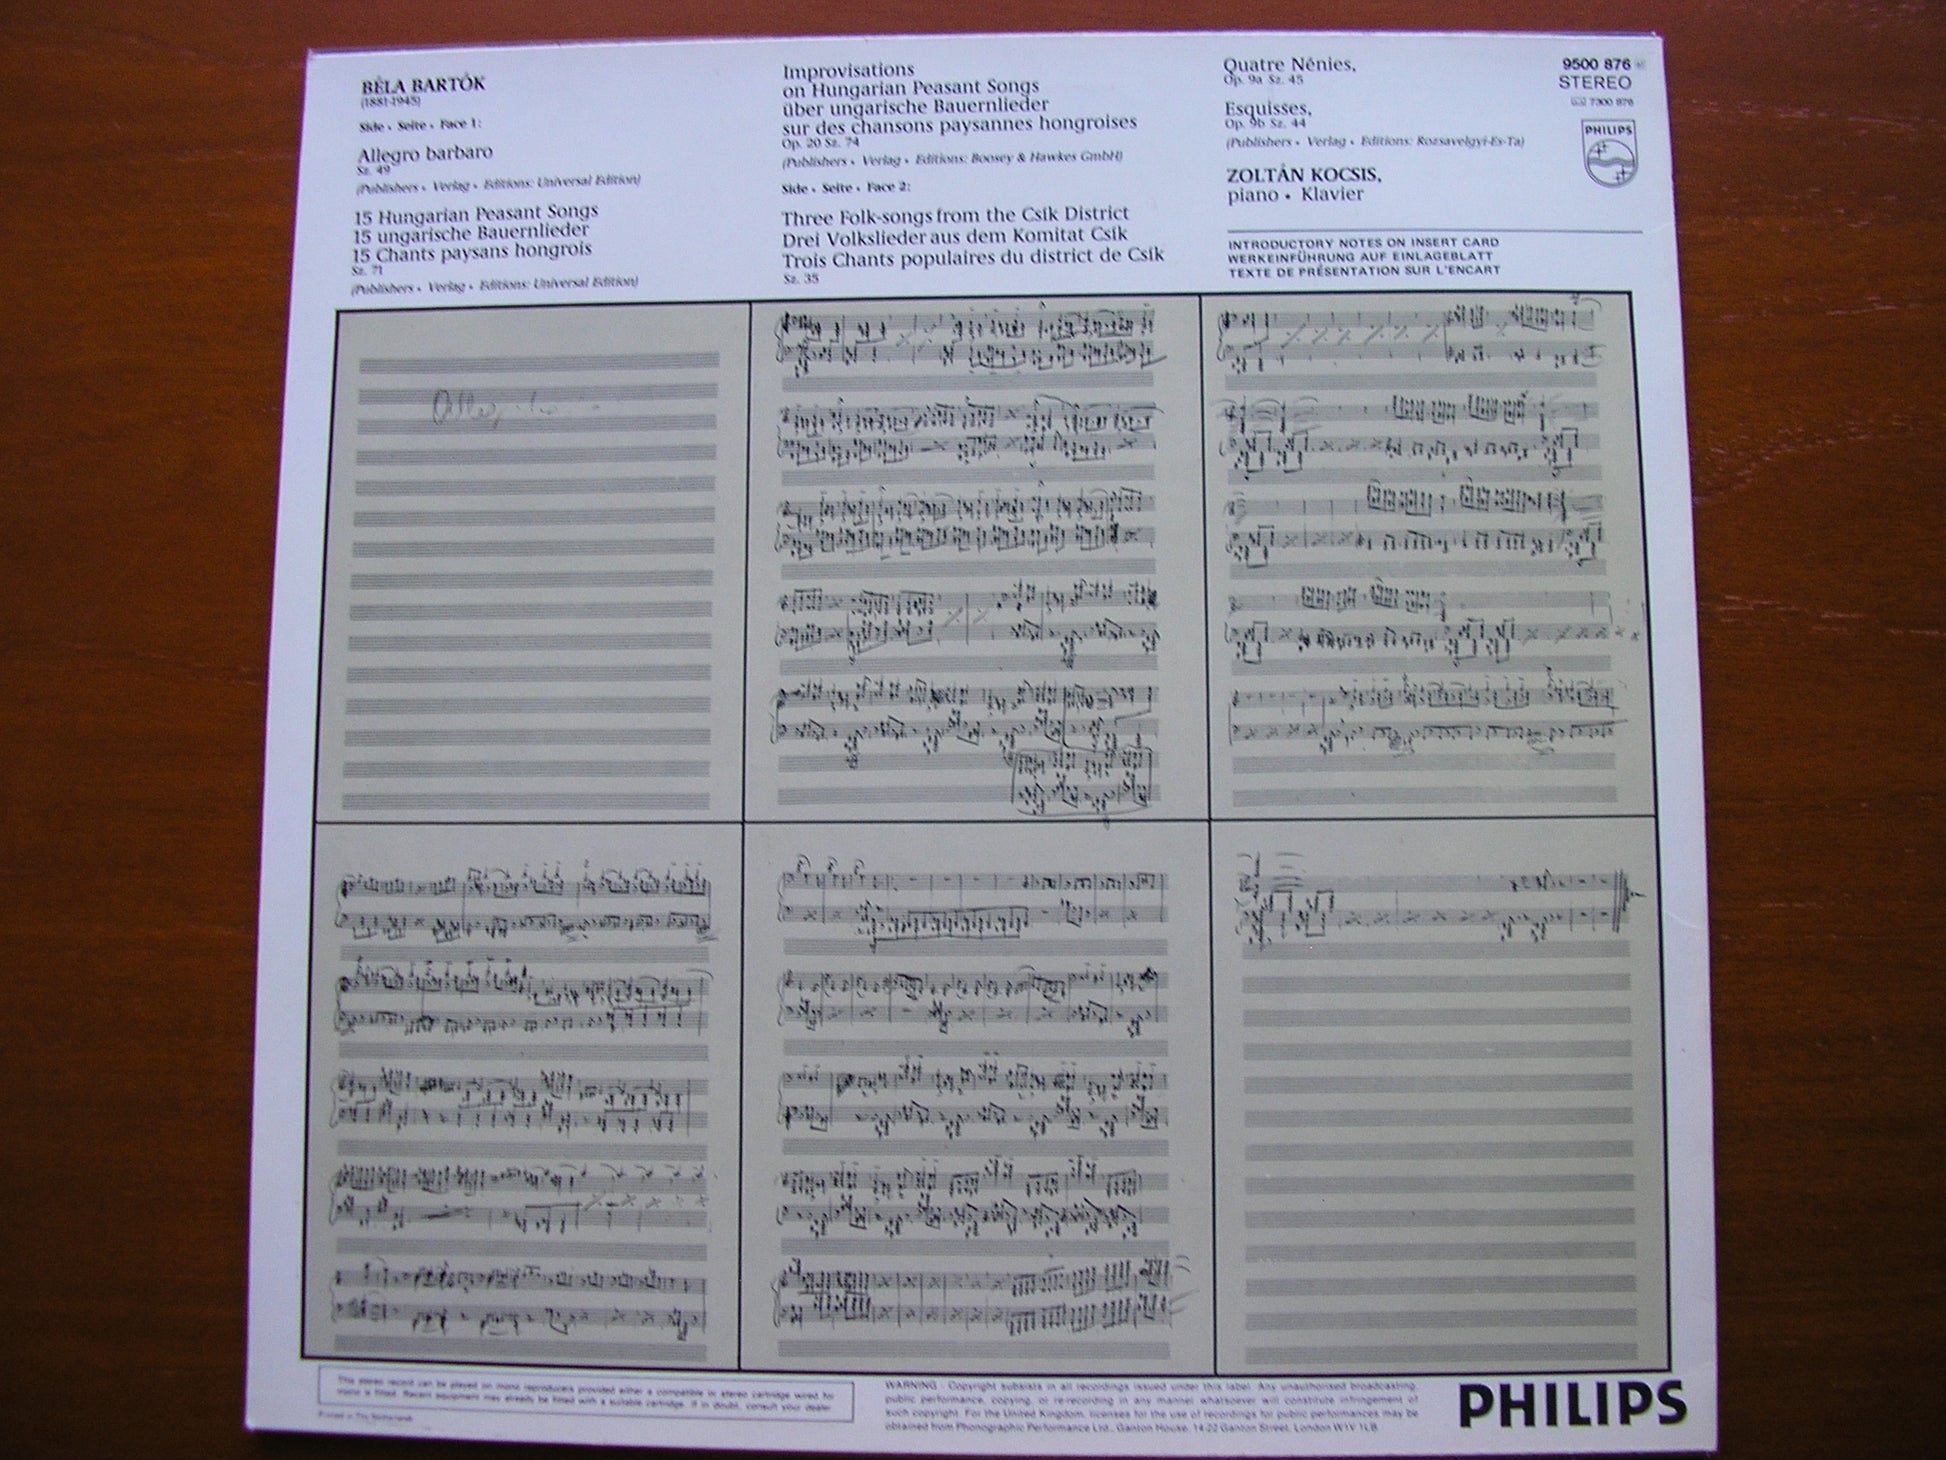 BÉLA BARTÓK
(1881-1945)
Side • Seite • Face 1:
Allegro barbaro
Sz. 49
(Publishers • Verlag • Editions: Universal Edition)
15 Hungarian Peasant Songs
15 ungarische Bauernlieder
15 Chants paysans hongrois
Sz. 71
(Publishers • Verlag • Editions: Universal Edition)
Improvisations
on Hungarian Peasant Songs
über ungarische Bauernlieder
sur des chansons paysannes hongroises
Op. 20 Sz. 74
(Publishers • Verlag • Editions: Boosey & Hawkes GmbH)
Side • Seite • Face 2:
Three Folk-songs from the Csík District
Drei Volkslieder aus dem Komitat Csík
Trois Chants populaires du district de Csík
Sz. 35
Quatre Nénies,
Op. 9a Sz. 45
Esquisses,
Op. 9b Sz. 44
(Publishers • Verlag • Editions: Rozsavelgyi-Es-Ta)
ZOLTÁN KOCSIS,
piano • Klavier
INTRODUCTORY NOTES ON INSERT CARD
WERKEINFÜHRUNG AUF EINLAGEBLATT
TEXTE DE PRÉSENTATION SUR L'ENCART
9500 876
STEREO
7300 876
PHILIPS
This stereo record can be played on mono reproducers provided either a compatible or stereo cartridge wired for
mono is fitted. Recent equipment may already be fitted with a suitable cartridge. If in doubt, consult your dealer
Printed in The Netherlands
WARNING - Copyright subsists in all recordings issued under this label. Any unauthorised broadcasting,
public performance, copying, or re-recording in any manner whatsoever will constitute infringement of
such copyright. For the United Kingdom, licenses for the use of recordings for public performances may be
obtained from Phonographic Performance Ltd., Ganton House, 14-22 Ganton Street, London W1V 1LB
PHILIPS